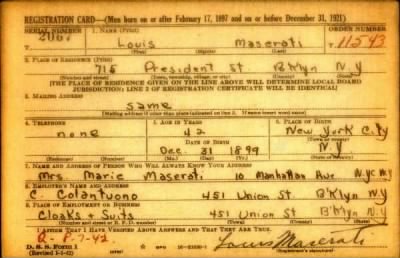 REGISTRATION CARD—(Men born on or after February 17, 1897 and on or before December 31, 1921)
SERIAL NUMBER 1. NAME (Print) ORDER NUMBER
2067 Louis Maserati T 11543
(First) (Middle) (Last)
2. PLACE OF RESIDENCE (Print)
715 President St B'Klyn N.Y
(Number and street) (Town, township, village, or city) (County) (State)
[THE PLACE OF RESIDENCE GIVEN ON THE LINE ABOVE WILL DETERMINE LOCAL BOARD
JURISDICTION; LINE 2 OF REGISTRATION CERTIFICATE WILL BE IDENTICAL]
3. MAILING ADDRESS
same
[Mailing address if other than place indicated on line 2. If same insert word same]
4. TELEPHONE 5. AGE IN YEARS 6. PLACE OF BIRTH
none 42 New York City
DATE OF BIRTH (Town or county)
Dec. 31 1899 N.Y.
(Exchange) (Number) (Mo.) (Day) (Yr.) (State or country)
7. NAME AND ADDRESS OF PERSON WHO WILL ALWAYS KNOW YOUR ADDRESS
Mrs. Marie Maserati 10 Manhattan Ave NYC NY
8. EMPLOYER'S NAME AND ADDRESS
C. Colantuono 451 Union St B'Klyn N.Y
9. PLACE OF EMPLOYMENT OR BUSINESS
Cloaks + Suits 451 Union St B'Klyn N.Y
(Number and street or R. F. D. number) (Town) (County) (State)
I AFFIRM THAT I HAVE VERIFIED ABOVE ANSWERS AND THAT THEY ARE TRUE.
D. S. S. Form 1 GPO Louis Maserati